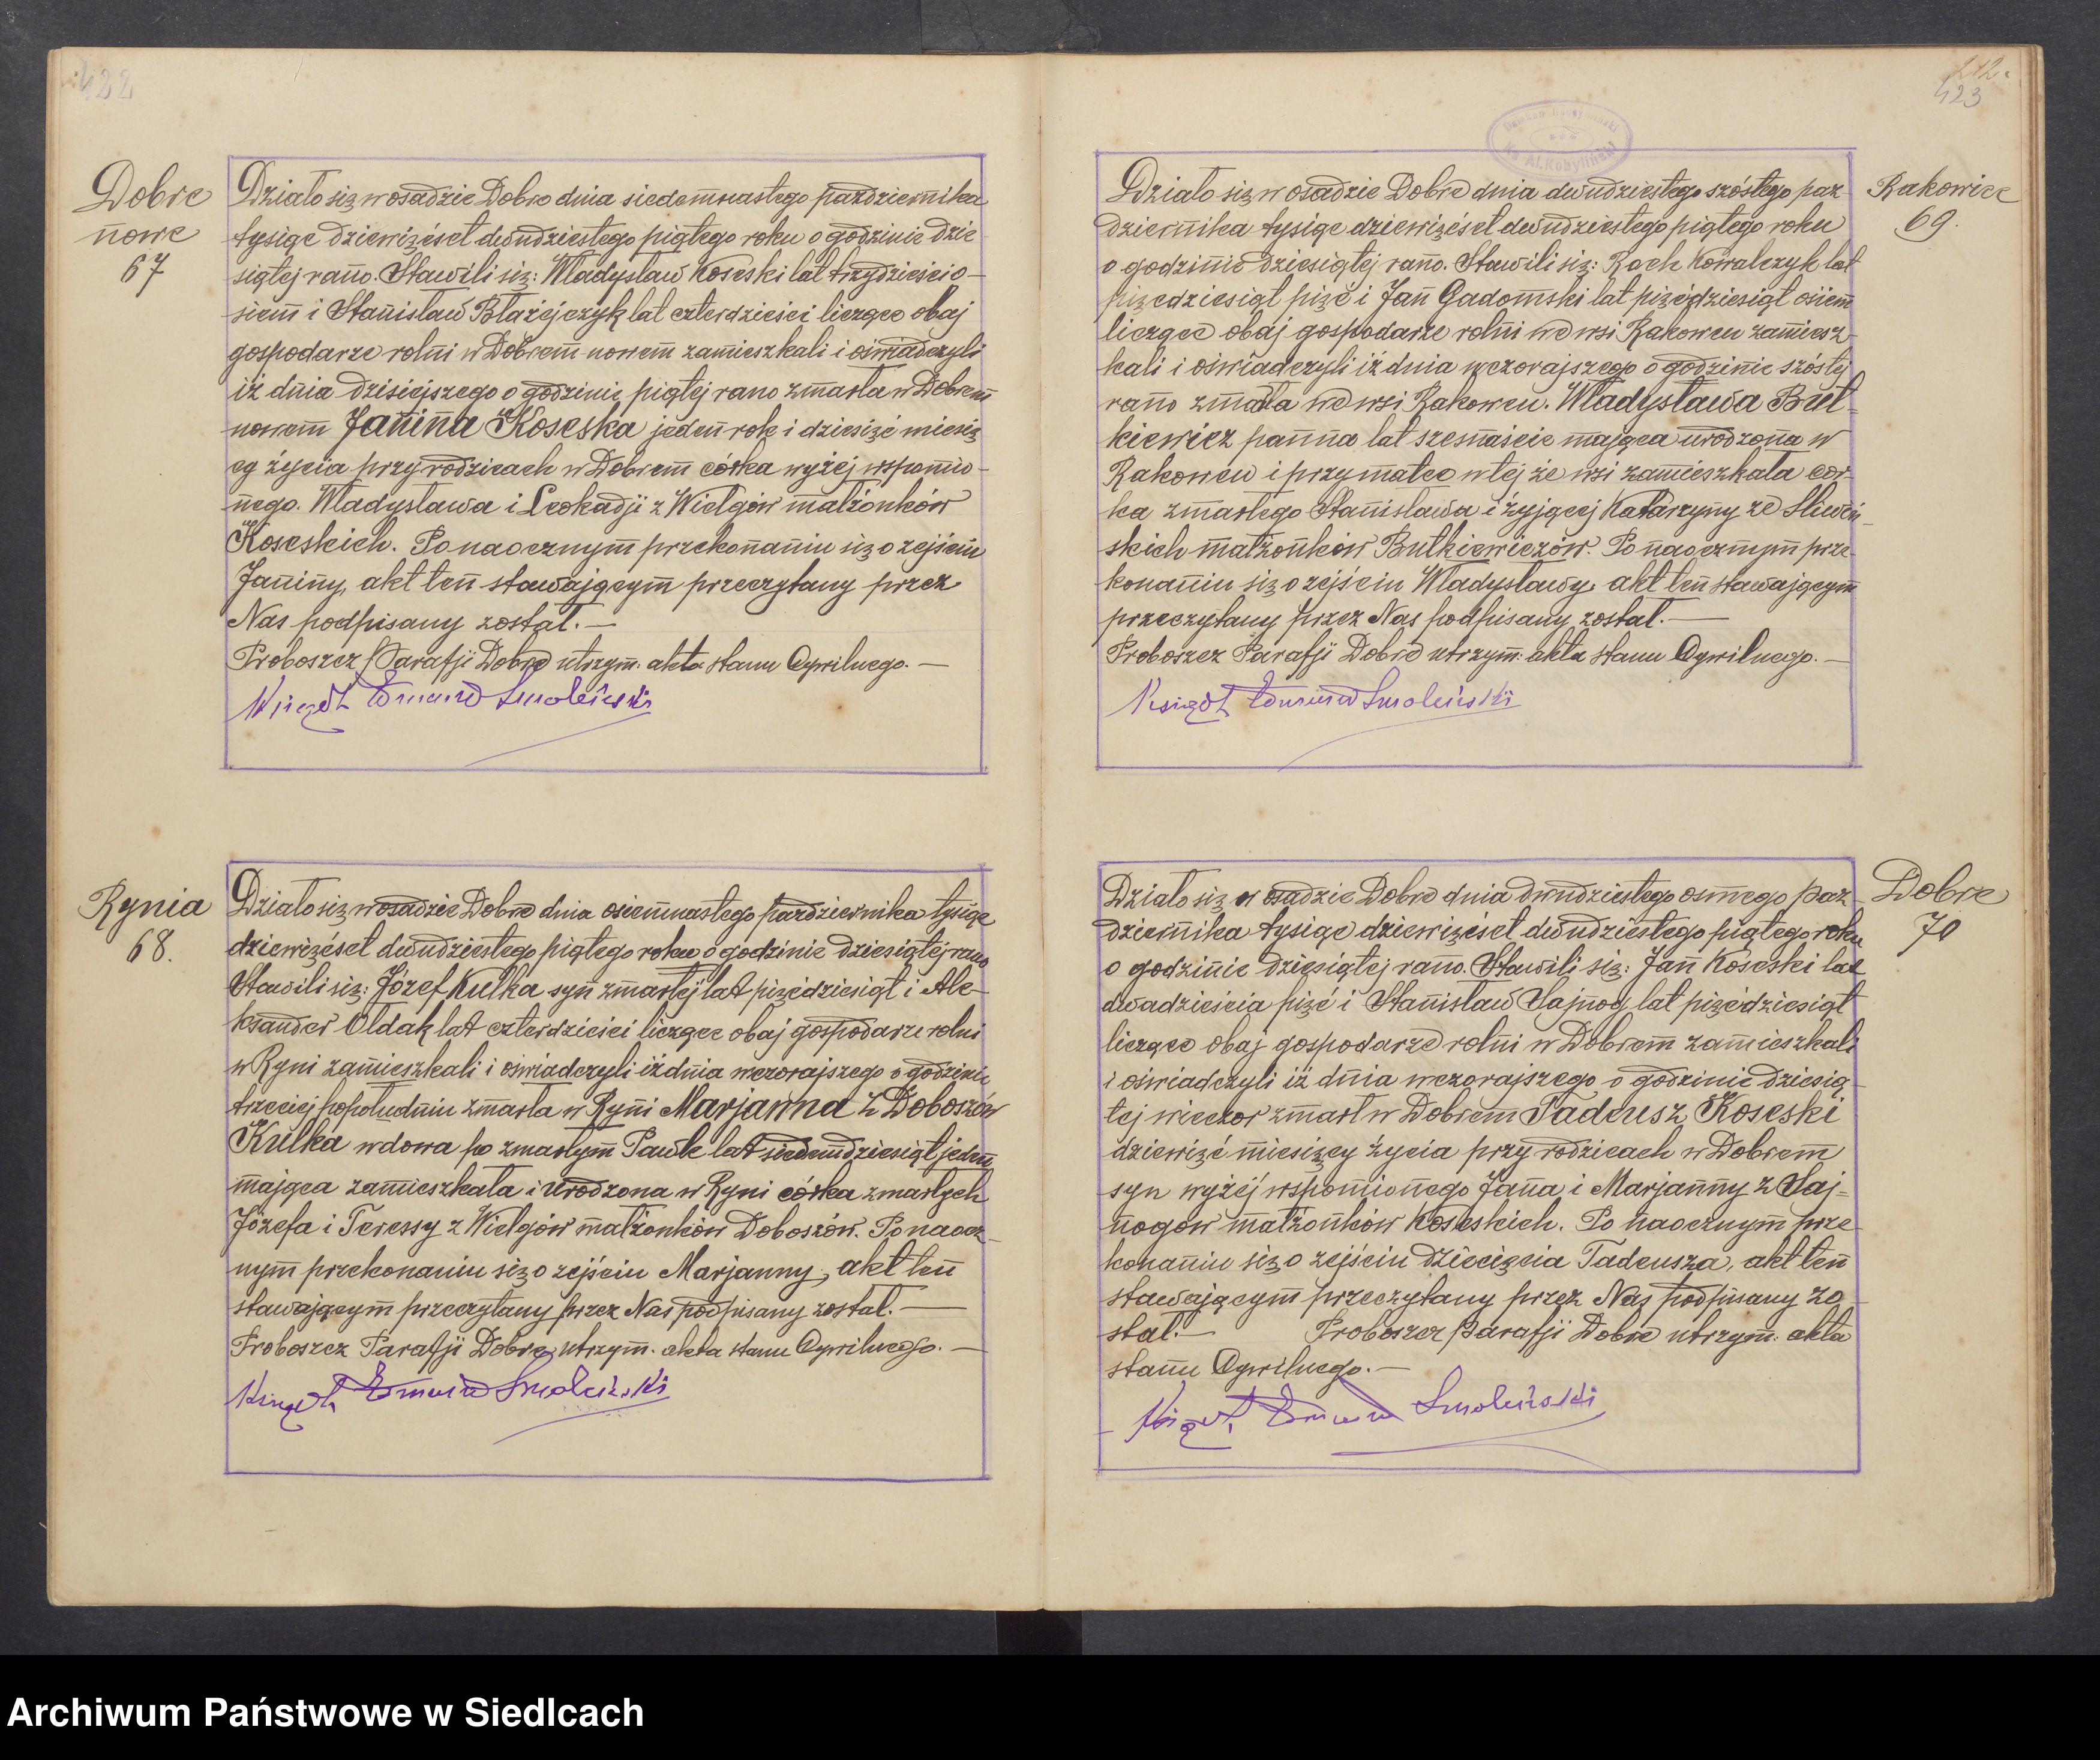 422
Dobre
nowe
67
Działo się w osadzie Dobre dnia siedemnastego października
tysiąc dziewięćset dwudziestego piątego roku o godzinie dzie
siątej rano. Stawili się: Władysław Koseski lat trzydzieścio-
siem i Stanisław Błażejczyk lat czterdzieści liczące obaj
gospodarze rolni w Dobrem nowem zamieszkali i oświadczyli
iż dnia dzisiejszego o godzinie piątej rano zmarła w Dobrem
nowem Janina Koseska jeden rok i dziesięć miesię
cy życia przy rodzicach w Dobrem córka wyżej wspomnio-
nego Władysława i Leokadji z Wielgów małżonków
Koseskich. Po naocznym przekonaniu się o zejściu
Janiny, akt ten stawającym przeczytany przez
Nas podpisany został. —
Proboszcz Parafji Dobre utrzym. akta stanu Cywilnego. —
Ksiądz Edmund Smoleński
Rynia
68.
Działo się w osadzie Dobre dnia osiemnastego października tysiąc
dziewięćset dwudziestego piątego roku o godzinie dziesiątej rano
Stawili się: Józef Kulka syn zmarłej lat pięćdziesiąt i Ale-
ksander Ołdak lat czterdzieści liczące obaj gospodarze rolni
w Ryni zamieszkali i oświadczyli iż dnia wczorajszego o godzinie
trzeciej popołudniu zmarła w Ryni Marjanna z Doboszów
Kulka wdowa po zmarłym Pawle lat siedemdziesiąt jeden
mająca zamieszkała i urodzona w Ryni córka zmarłych
Józefa i Teressy z Wielgów małżonków Doboszów. Po naocz-
nym przekonaniu się o zejściu Marjanny, akt ten
stawającym przeczytany przez Nas podpisany został. —
Proboszcz Parafji Dobre utrzym. akta stanu Cywilnego. —
Ksiądz Edmund Smoleński
212.
423
Ks. Al. Kobyliński
Rakowiec
69.
Działo się w osadzie Dobre dnia dwudziestego szóstego paź-
dziernika tysiąc dziewięćset dwudziestego piątego roku
o godzinie dziesiątej rano. Stawili się: Roch Kowalczyk lat
pięćdziesiąt pięć i Jan Gadomski lat pięćdziesiąt osiem
liczące obaj gospodarze rolni we wsi Rakowcu zamiesz-
kali i oświadczyli iż dnia wczorajszego o godzinie szóstej
rano zmarła we wsi Rakowcu. Władysława But-
kiewicz panna lat szesnaście mająca urodzona w
Rakowcu i przy matce w tej że wsi zamieszkała cór-
ka zmarłego Stanisława i żyjącej Katarzyny ze Śliwiń-
skich małżonków Butkiewiczów. Po naocznym prze-
konaniu się o zejściu Władysławy, akt ten stawającym
przeczytany przez Nas podpisany został. —
Proboszcz Parafji Dobre utrzym. akta stanu Cywilnego. —
Ksiądz Edmund Smoleński
Dobre
70
Działo się w osadzie Dobre dnia dwudziestego osmego paź-
dziernika tysiąc dziewięćset dwudziestego piątego roku
o godzinie dziesiątej rano. Stawili się: Jan Koseski lat
dwadzieścia pięć i Stanisław Sajnog lat pięćdziesiąt
liczące obaj gospodarze rolni w Dobrem zamieszkali
i oświadczyli iż dnia wczorajszego o godzinie dziesią-
tej wieczor zmarł w Dobrem Tadeusz Koseski
dziewięć miesięcy życia przy rodzicach w Dobrem
syn wyżej wspomionego Jana i Marjanny z Saj-
nogow małżonków Koseskich. Po naocznym prze
konaniu się o zejściu dziecięcia Tadeusza, akt ten
stawającym przeczytany przez Nas podpisany zo
stał. — Proboszcz Parafji Dobre utrzym. akta
stanu Cywilnego. —
Ksiądz Edmund Smoleński
Archiwum Państwowe w Siedlcach